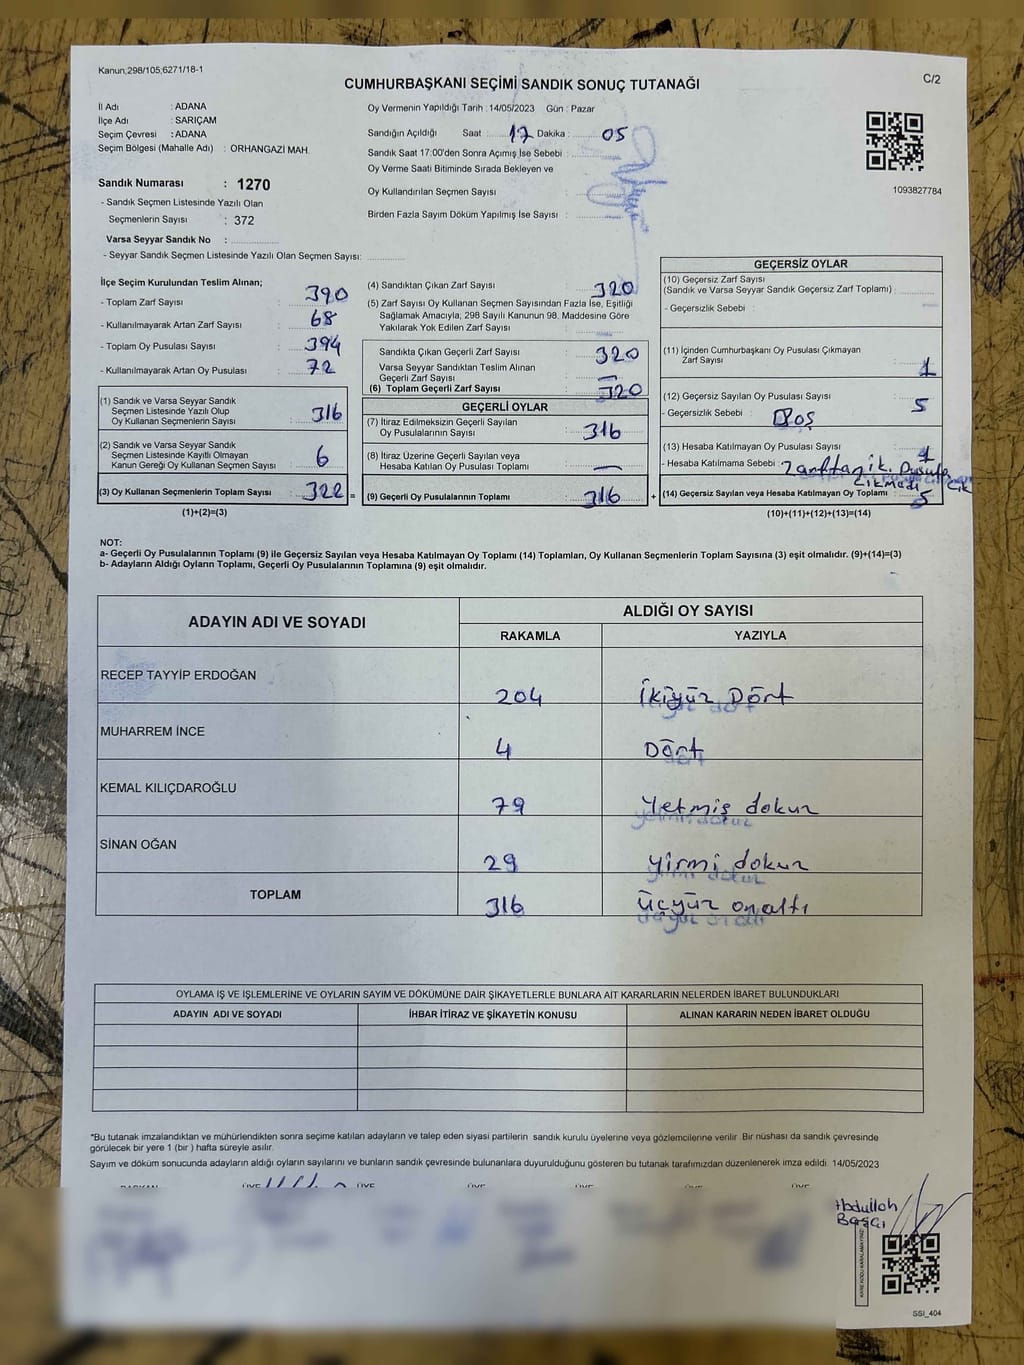 Kanun,298/105,6271/18-1
CUMHURBAŞKANI SEÇİMİ SANDIK SONUÇ TUTANAĞI
C/2
İl Adı : ADANA
İlçe Adı : SARIÇAM
Seçim Çevresi : ADANA
Seçim Bölgesi (Mahalle Adı) : ORHANGAZİ MAH.
Sandık Numarası : 1270
- Sandık Seçmen Listesinde Yazılı Olan
Seçmenlerin Sayısı : 372
Varsa Seyyar Sandık No :
- Seyyar Sandık Seçmen Listesinde Yazılı Olan Seçmen Sayısı:
Oy Vermenin Yapıldığı Tarih : 14/05/2023 Gün : Pazar
Sandığın Açıldığı Saat : 17 Dakika : 05
Sandık Saat 17:00'den Sonra Açımış İse Sebebi :
Oy Verme Saati Bitiminde Sırada Bekleyen ve
Oy Kullandırılan Seçmen Sayısı :
Birden Fazla Sayım Döküm Yapılmış İse Sayısı :
1093827784
İlçe Seçim Kurulundan Teslim Alınan;
- Toplam Zarf Sayısı : 390
- Kullanılmayarak Artan Zarf Sayısı : 68
- Toplam Oy Pusulası Sayısı : 394
- Kullanılmayarak Artan Oy Pusulası : 72
(1) Sandık ve Varsa Seyyar Sandık
Seçmen Listesinde Yazılı Olup
Oy Kullanan Seçmenlerin Sayısı : 316
(2) Sandık ve Varsa Seyyar Sandık
Seçmen Listesinde Kayıtlı Olmayan
Kanun Gereği Oy Kullanan Seçmen Sayısı : 6
(3) Oy Kullanan Seçmenlerin Toplam Sayısı : 322 =
(1)+(2)=(3)
(4) Sandıktan Çıkan Zarf Sayısı : 320
(5) Zarf Sayısı Oy Kullanan Seçmen Sayısından Fazla İse, Eşitliği
Sağlamak Amacıyla, 298 Sayılı Kanunun 98. Maddesine Göre
Yakılarak Yok Edilen Zarf Sayısı :
Sandıkta Çıkan Geçerli Zarf Sayısı : 320
Varsa Seyyar Sandıktan Teslim Alınan
Geçerli Zarf Sayısı : —
(6) Toplam Geçerli Zarf Sayısı : 320
GEÇERLİ OYLAR
(7) İtiraz Edilmeksizin Geçerli Sayılan
Oy Pusulalarının Sayısı : 316
(8) İtiraz Üzerine Geçerli Sayılan veya
Hesaba Katılan Oy Pusulası Toplamı : —
(9) Geçerli Oy Pusulalarının Toplamı : 316 +
GEÇERSİZ OYLAR
(10) Geçersiz Zarf Sayısı
(Sandık ve Varsa Seyyar Sandık Geçersiz Zarf Toplamı) :
- Geçersizlik Sebebi :
(11) İçinden Cumhurbaşkanı Oy Pusulası Çıkmayan
Zarf Sayısı : 1
(12) Geçersiz Sayılan Oy Pusulası Sayısı : 5
- Geçersizlik Sebebi : Boş
(13) Hesaba Katılmayan Oy Pusulası Sayısı : 1
- Hesaba Katılmama Sebebi : Zarftan
Çıkmadı
(14) Geçersiz Sayılan veya Hesaba Katılmayan Oy Toplamı : 5
(10)+(11)+(12)+(13)=(14)
NOT:
a- Geçerli Oy Pusulalarının Toplamı (9) ile Geçersiz Sayılan veya Hesaba Katılmayan Oy Toplamı (14) Toplamları, Oy Kullanan Seçmenlerin Toplam Sayısına (3) eşit olmalıdır. (9)+(14)=(3)
b- Adayların Aldığı Oyların Toplamı, Geçerli Oy Pusulalarının Toplamına (9) eşit olmalıdır.
ADAYIN ADI VE SOYADI
ALDIĞI OY SAYISI
RAKAMLA YAZIYLA
RECEP TAYYİP ERDOĞAN 204 İkiyüz Dört
MUHARREM İNCE 4 Dört
KEMAL KILIÇDAROĞLU 79 Yetmiş dokuz
SİNAN OĞAN 29 yirmi dokuz
TOPLAM 316 üçyüz onaltı
OYLAMA İŞ VE İŞLEMLERİNE VE OYLARIN SAYIM VE DÖKÜMÜNE DAİR ŞİKAYETLERLE BUNLARA AİT KARARLARIN NELERDEN İBARET BULUNDUKLARI
ADAYIN ADI VE SOYADI İHBAR İTİRAZ VE ŞİKAYETİN KONUSU ALINAN KARARIN NEDEN İBARET OLDUĞU
*Bu tutanak imzalandıktan ve mühürlendikten sonra seçime katılan adayların ve talep eden siyasi partilerin sandık kurulu üyelerine veya gözlemcilerine verilir. Bir nüshası da sandık çevresinde
görülecek bir yere 1 (bir ) hafta süreyle asılır.
Sayım ve döküm sonucunda adayların aldığı oyların sayılarını ve bunların sandık çevresinde bulunanlara duyurulduğunu gösteren bu tutanak tarafımızdan düzenlenerek imza edildi. 14/05/2023
BAŞKAN ÜYE ÜYE ÜYE ÜYE ÜYE
Abdullah
Başcı
KARE KODU KARALAMAYINIZ
SSI_404